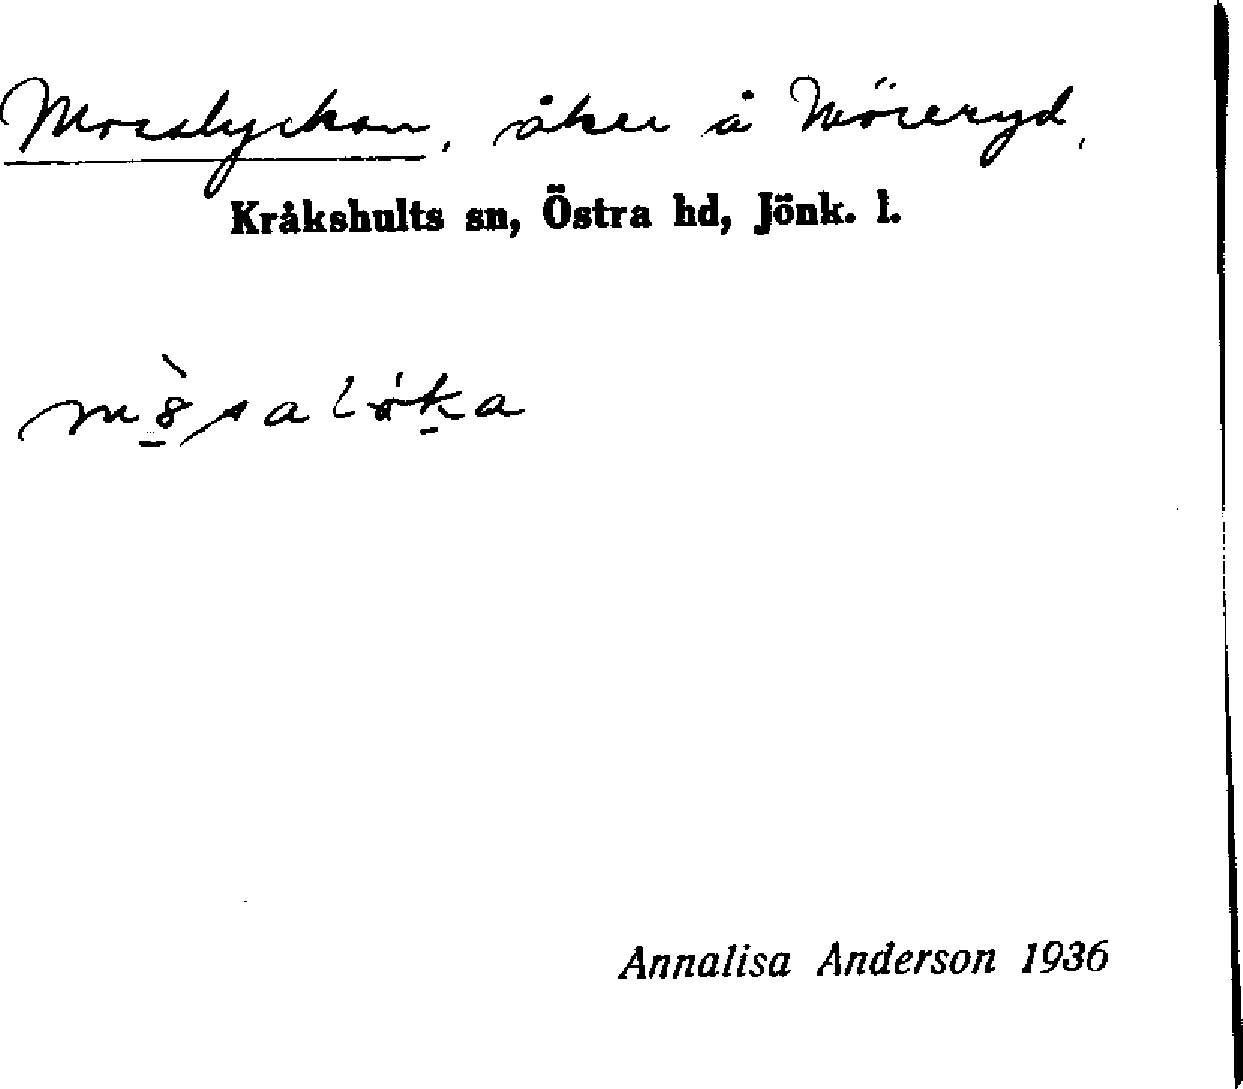 Mosslyckan, åker å Möseryd,
Kråkshults sn, Östra hd, Jönk. l.
Annalisa Anderson 1936